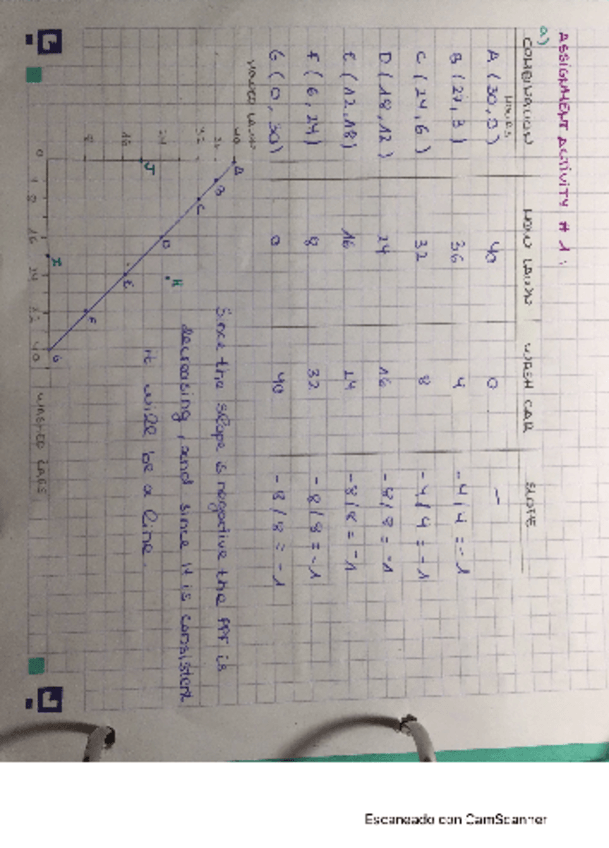 ASSIGNMENT ACTIVITY # 1:
a)
COMBINATION MOW LAWN WASH CAR SLOPE
HOURS
A (30,0) 40 0 —
B (27,3) 36 4 -4/4 = -1
C (24,6) 32 8 -4/4 = -1
D (18,12) 24 16 -8/8 = -1
E (12,18) 16 24 -8/8 = -1
F (6,24) 8 32 -8/8 = -1
G (0,30) 0 40 -8/8 = -1
MOWED LAWN
40 A
36 B
32 C
24 D H
16 J E
8 F
0 4 8 16 I 24 32 40 G WASHED CARS
Since the slope is negative the PPF is
decreasing, and since it is consistent
it will be a line.
Escaneado con CamScanner